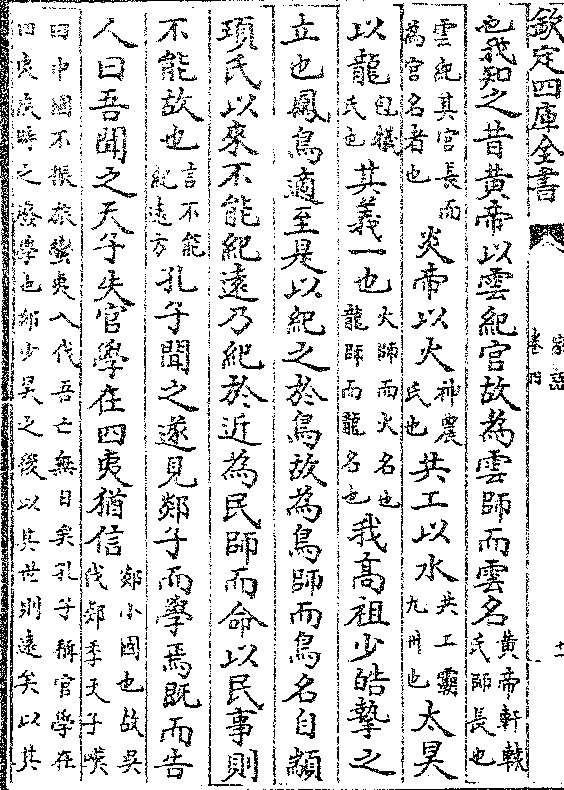 欽定四庫全書
家語
卷四
十一
也我知之昔黃帝以雲紀官故為雲師而雲名黃帝軒轅氏師長也
雲紀其官長而為官名者也炎帝以火神農氏也共工以水共工霸九州也太昊
以龍包犧氏也其義一也火師而火名也龍師而龍名也我高祖少皓摯之
立也鳳鳥適至是以紀之於鳥故為鳥師而鳥名自顓
頊氏以來不能紀遠乃紀於近為民師而命以民事則
不能故也言不能紀遠方孔子聞之遂見郯子而學焉既而告
人曰吾聞之天子失官學在四夷猶信郯小國也故吳伐郯季天子嘆
曰中國不振旅蠻夷入伐吾亡無日矣孔子稱官學在四夷疾時之癈學也郯少昊之後以其世則遠矣以其